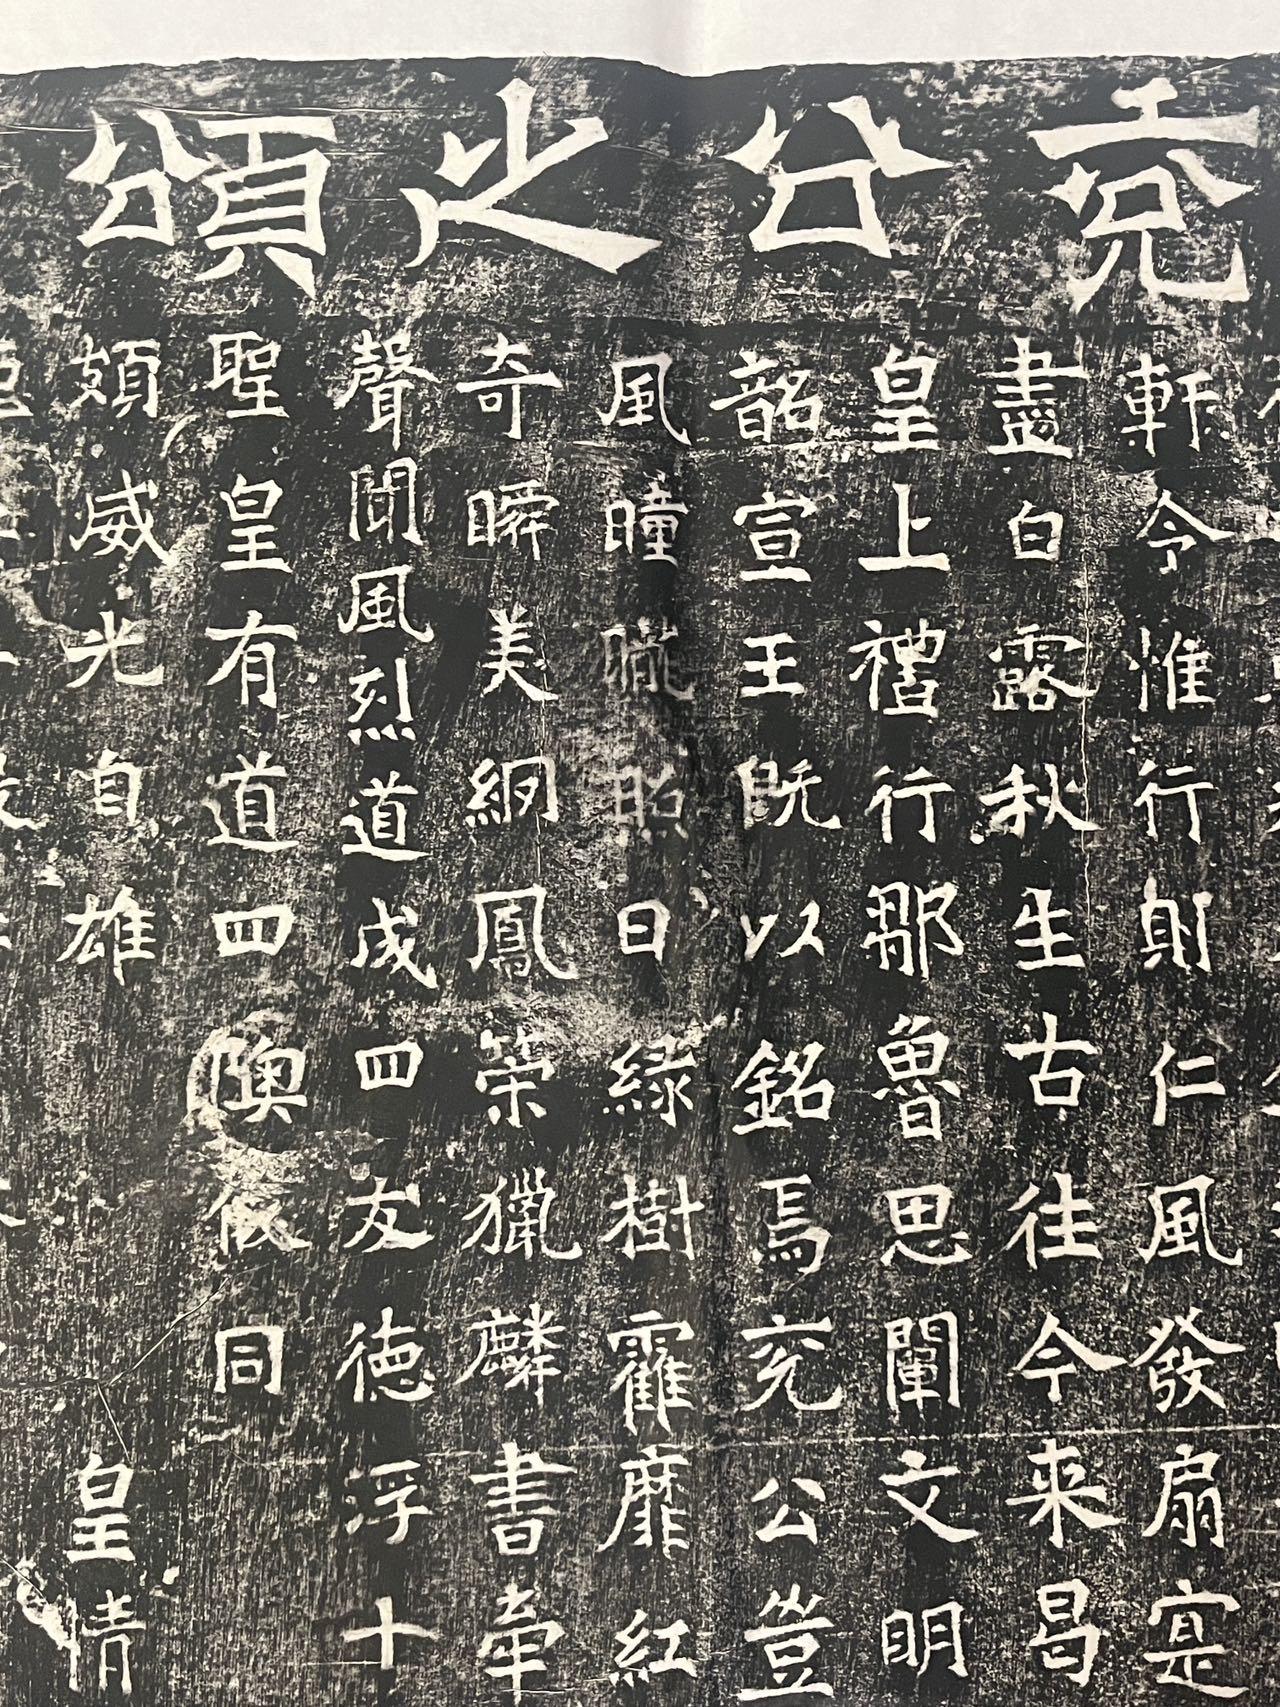 兖公之頌
軒令惟行射仁風發扇寔
盡白露秋生古往今来曷
皇上禮行鄒魯思闡文明
韶宣王既以銘焉兖公豈
風曈曨照日緑樹霍靡紅
奇瞬美綗鳳䇿獵麟書牽
聲聞風烈道成四友德浮十
聖皇有道四隩攸同
頍威光自雄 皇情